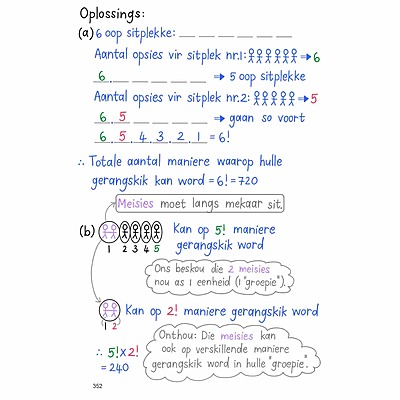 Oplossings:
(a) 6 oop sitplekke: _ _ _ _ _ _
Aantal opsies vir sitplek nr.1: ⇒ 6
6 _ _ _ _ _ ⇒ 5 oop sitplekke
Aantal opsies vir sitplek nr.2: ⇒ 5
6 . 5 . _ _ _ _ ⇒ gaan so voort
6 . 5 . 4 . 3 . 2 . 1 = 6!
∴ Totale aantal maniere waarop hulle
gerangskik kan word = 6! = 720
Meisies moet langs mekaar sit.
(b) Kan op 5! maniere
gerangskik word
1 2 3 4 5
Ons beskou die 2 meisies
nou as 1 eenheid (1 "groepie").
Kan op 2! maniere gerangskik word
1 2
Onthou: Die meisies kan
ook op verskillende maniere
gerangskik word in hulle "groepie".
∴ 5! x 2!
= 240
352